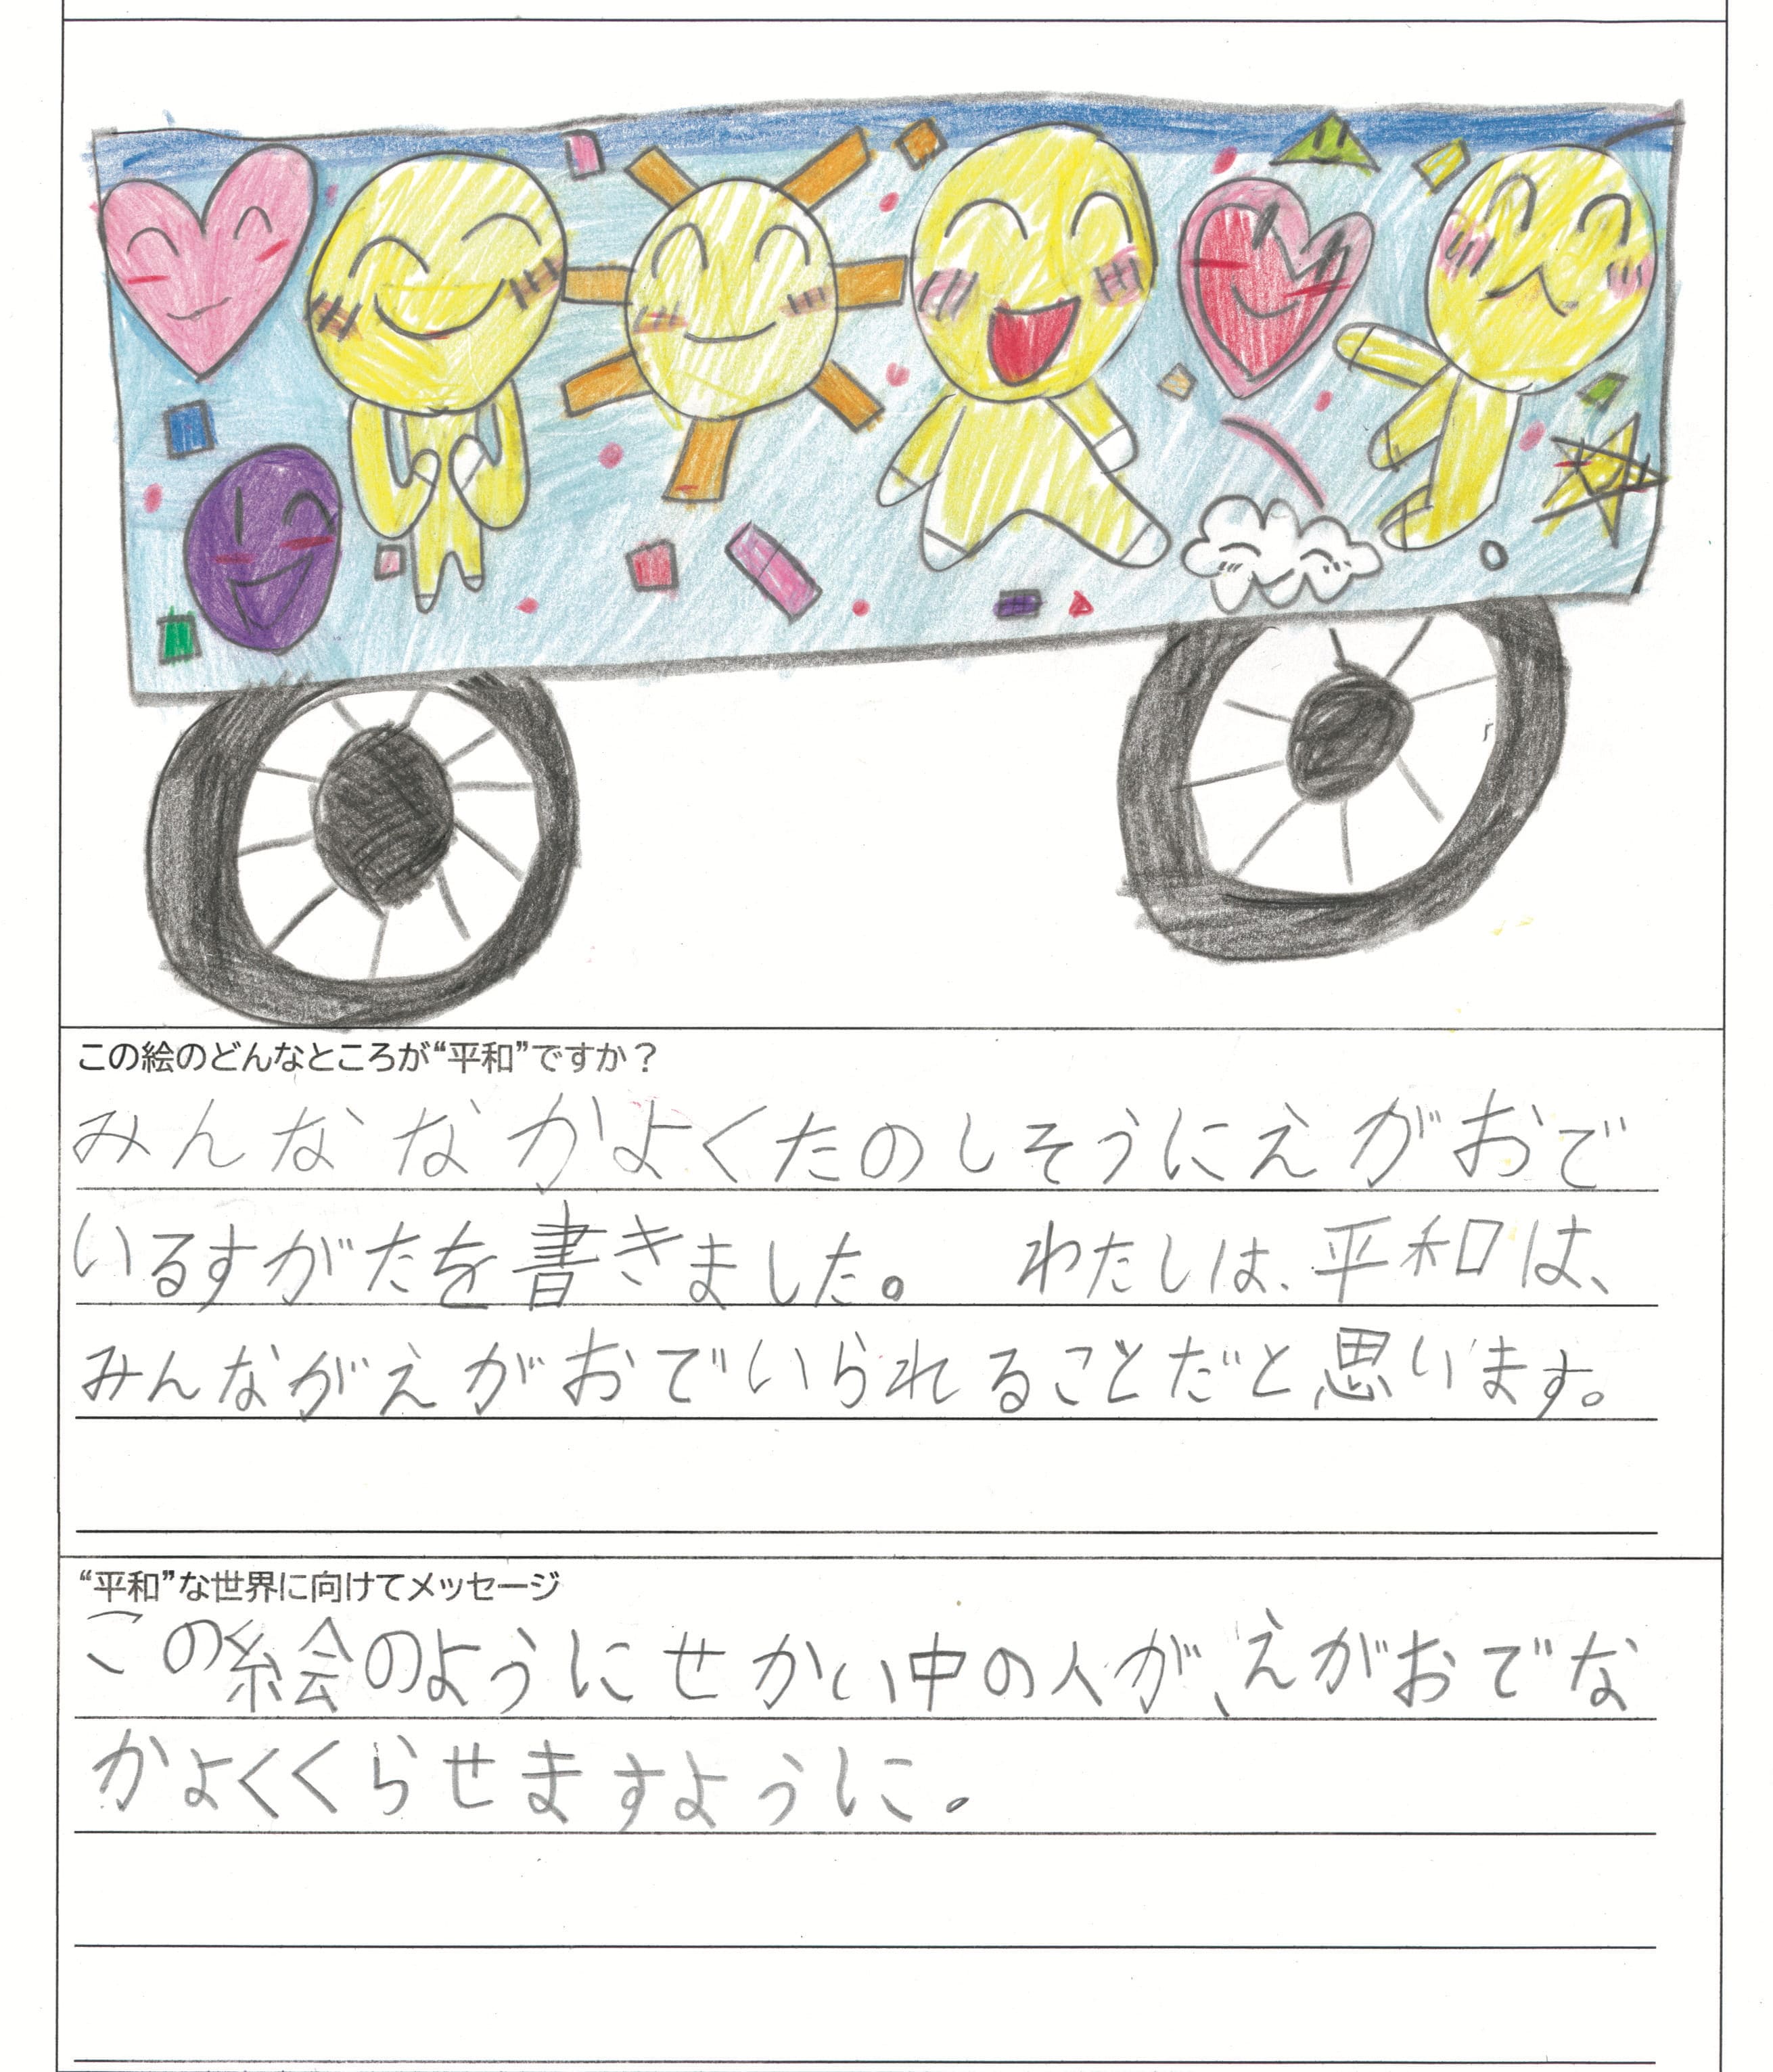 この絵のどんなところが“平和”ですか？
みんななかよくたのしそうにえがおで
いるすがたを書きました。 わたしは、平和は、
みんながえがおでいられることだと思います。
“平和”な世界に向けてメッセージ
この絵のようにせかい中の人が、えがおでな
かよくくらせますように。